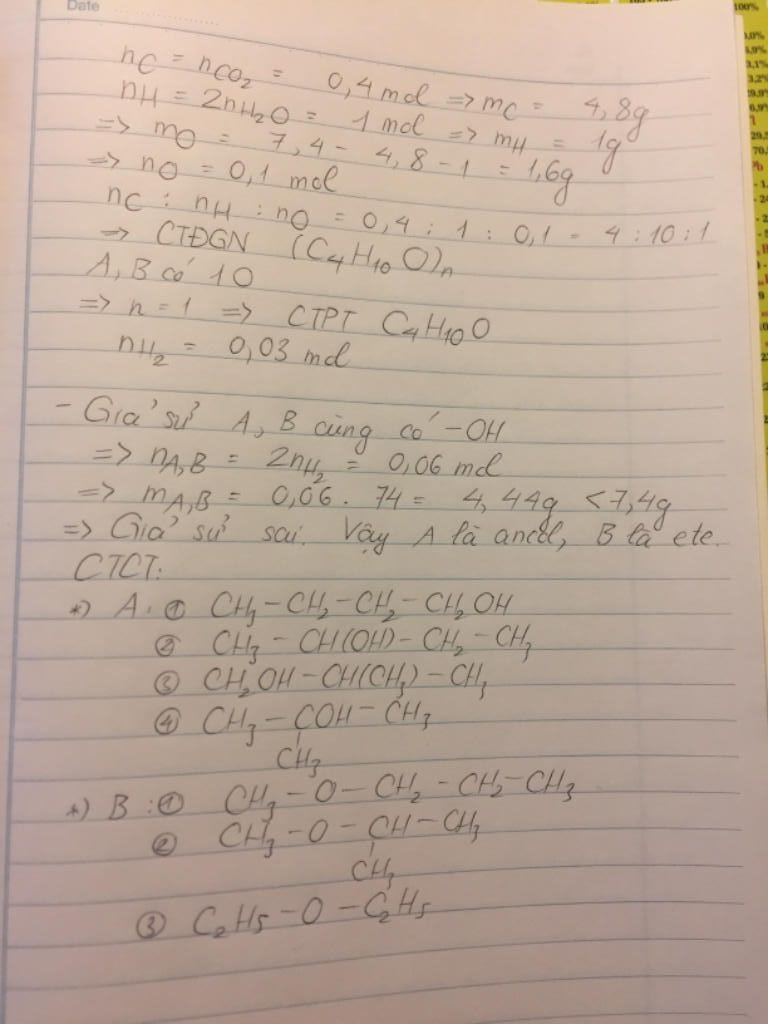 Date
nC = nCO₂ = 0,4 mol => mC = 4,8g
nH = 2nH₂O = 1 mol => mH = 1g
=> mO = 7,4 - 4,8 - 1 = 1,6g
=> nO = 0,1 mol
nC : nH : nO = 0,4 : 1 : 0,1 = 4 : 10 : 1
=> CTĐGN (C₄H₁₀O)n
A, B có 1O
=> n = 1 => CTPT C₄H₁₀O
nH₂ = 0,03 mol
- Giả sử A, B cùng có -OH
=> nA,B = 2nH₂ = 0,06 mol
=> mA,B = 0,06 . 74 = 4,44g < 7,4g
=> Giả sử sai. Vậy A là ancol, B là ete.
CTCT:
*) A: ① CH₃ - CH₂ - CH₂ - CH₂OH
② CH₃ - CH(OH) - CH₂ - CH₃
③ CH₂OH - CH(CH₃) - CH₃
④ CH₃ - COH - CH₃
CH₃
*) B: ① CH₃ - O - CH₂ - CH₂ - CH₃
② CH₃ - O - CH - CH₃
CH₃
③ C₂H₅ - O - C₂H₅
100%